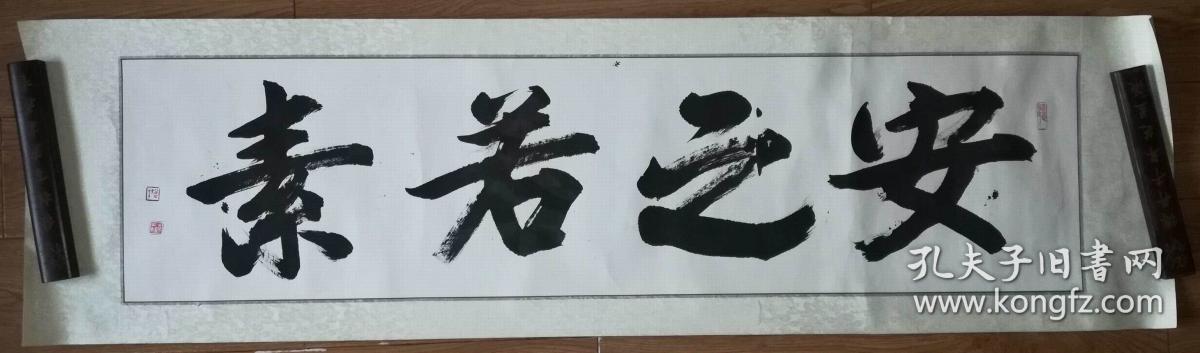 安之若素
孔夫子旧書网
www.kongfz.com